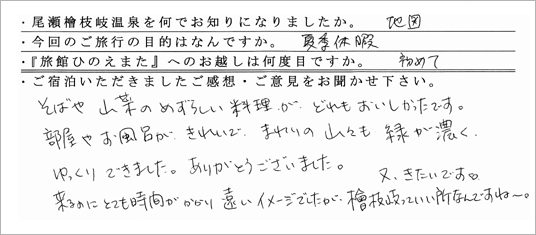 ・尾瀬檜枝岐温泉を何でお知りになりましたか。 地図
・今回のご旅行の目的はなんですか。 夏季休暇
・『旅館ひのえまた』へのお越しは何度目ですか。 初めて
・ご宿泊いただきましたご感想・ご意見をお聞かせ下さい。
そばや 山菜のめずらしい料理が、どれもおいしかったです。
部屋やお風呂が、きれいで、まわりの山々も 緑が濃く、
ゆっくりできました。ありがとうございました。
又、きたいです。
来るのにとても時間がかかり 遠いイメージでしたが、檜枝岐っていい所なんですね〜。